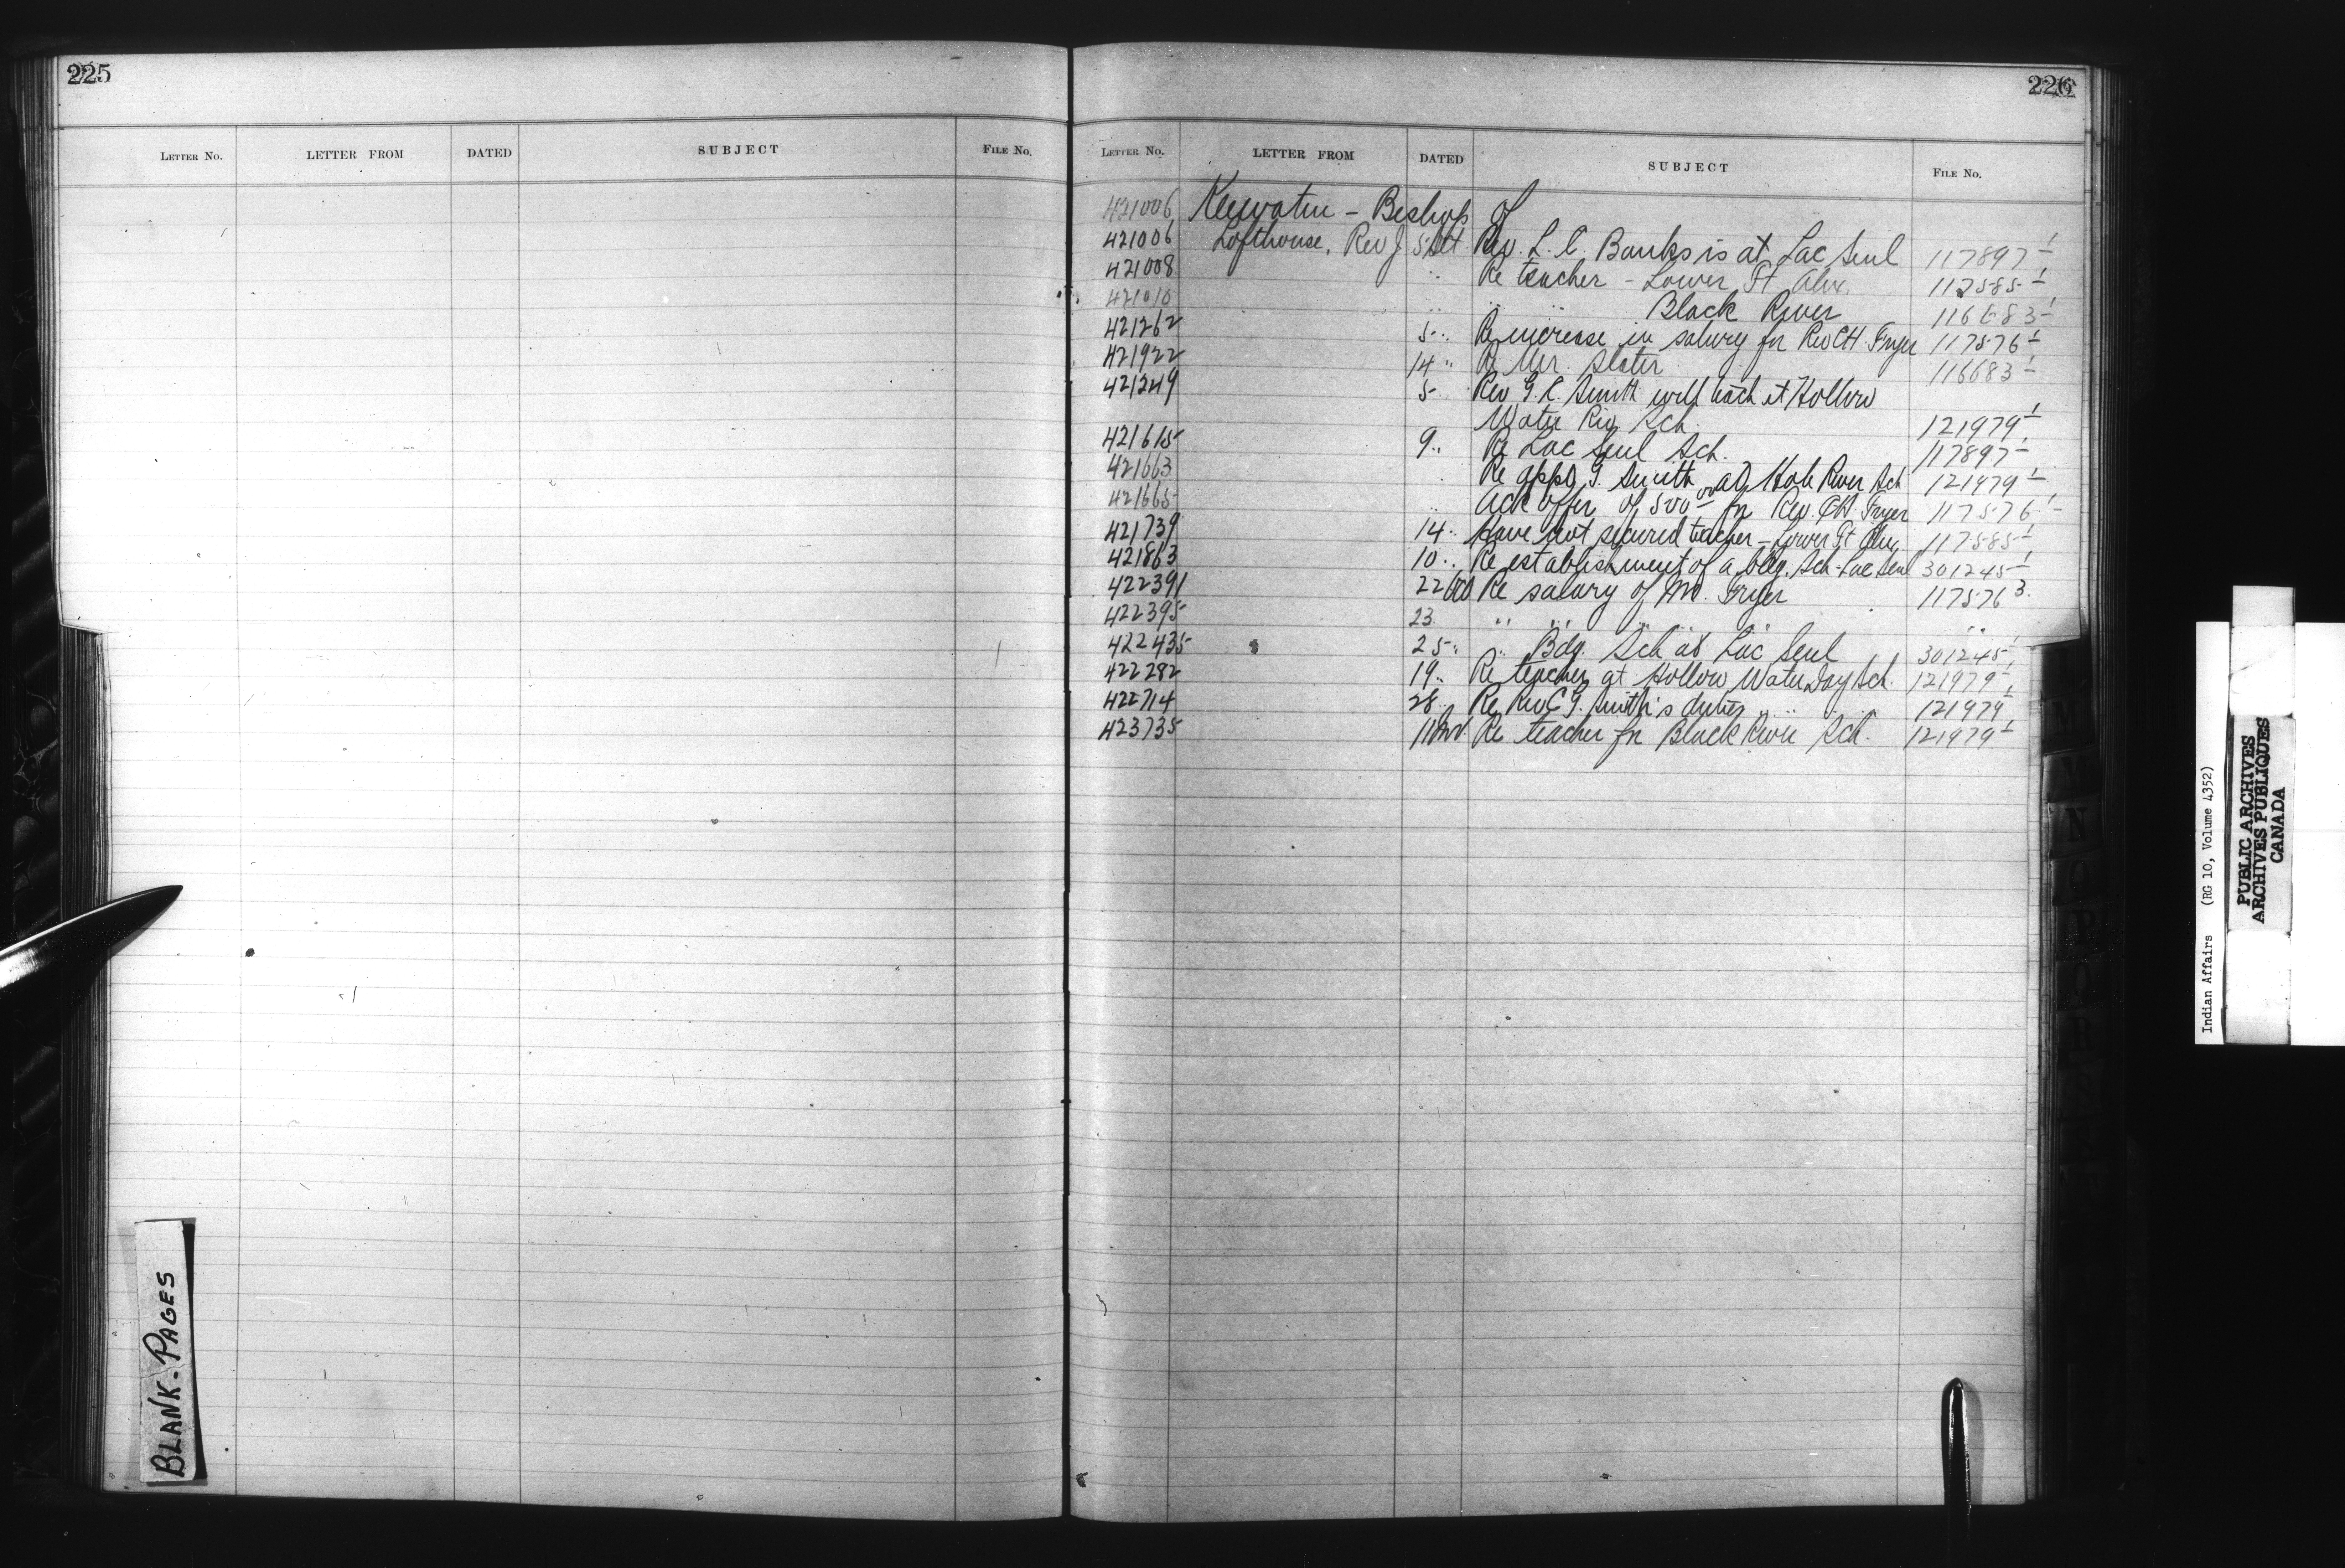 225
LETTER No. LETTER FROM DATED SUBJECT FILE No.
BLANK-PAGES
226
LETTER No. LETTER FROM DATED SUBJECT FILE No.
421006 Keewatin - Bishop of
421006 Lofthouse, Rev J 5 Oct Rev. L. C. Banks is at Lac Seul 117897-1
421008 " Re teacher - Lower Ft Alex. 117585-1
421010 " " " Black River 116683-1
421262 5 " Re increase in salary for Rev CH. Fryer 117576-1
421922 14 " Re Mr. Slater 116683-1
421249 5 " Rev G. C. Smith will teach at Hollow
Water Riv Sch. 121979-1
421615 9 " Re Lac Seul Sch. 117897-1
421663 " Re appt G. Smith at Hole River Sch 121979-1
421665 " Ack offer of 500 00 for Rev. CH. Fryer 117576-1
421739 14 " Have not secured teacher - Lower Ft Alex. 117585-1
421863 10 " Re establishment of a bdg. Sch - Lac Seul 301245-1
422391 22 Oct Re salary of Mr. Fryer 117576 3
422395 23 " " " " " "
422435 25 " " Bdg. Sch at Lac Seul 301245-1
422282 19 " Re teacher at Hollow Water Day Sch. 121979-1
422714 28 " Re Rev C G. Smith's duties " " " 121979-1
423735 11 Nov. Re teacher for Black River Sch. 121979-1
L
M
N
O
P
Q
R
S
Indian Affairs (RG 10, Volume 4352)
PUBLIC ARCHIVES
ARCHIVES PUBLIQUES
CANADA